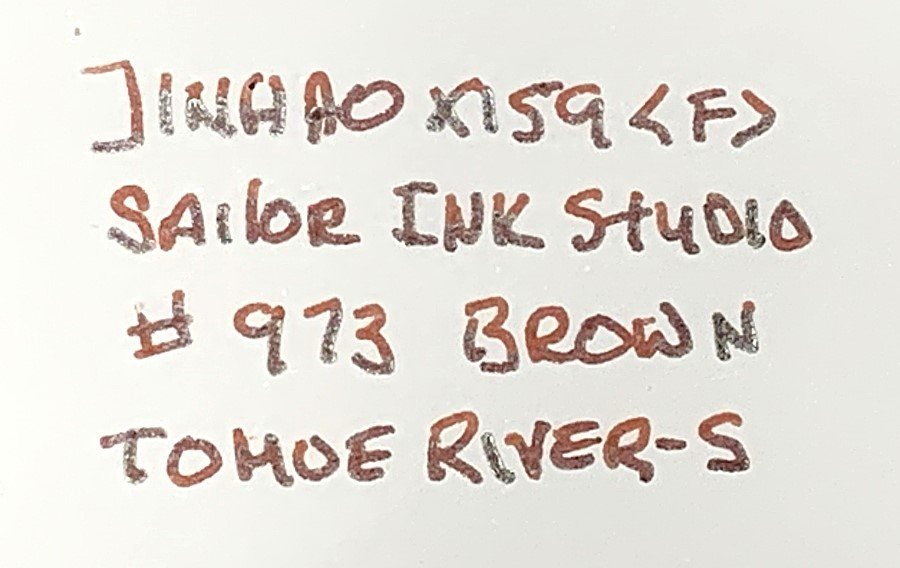 JINHAO X159 <F>
SAilOR INK StUDIO
# 973 BROWN
TOMOE RIVER-S